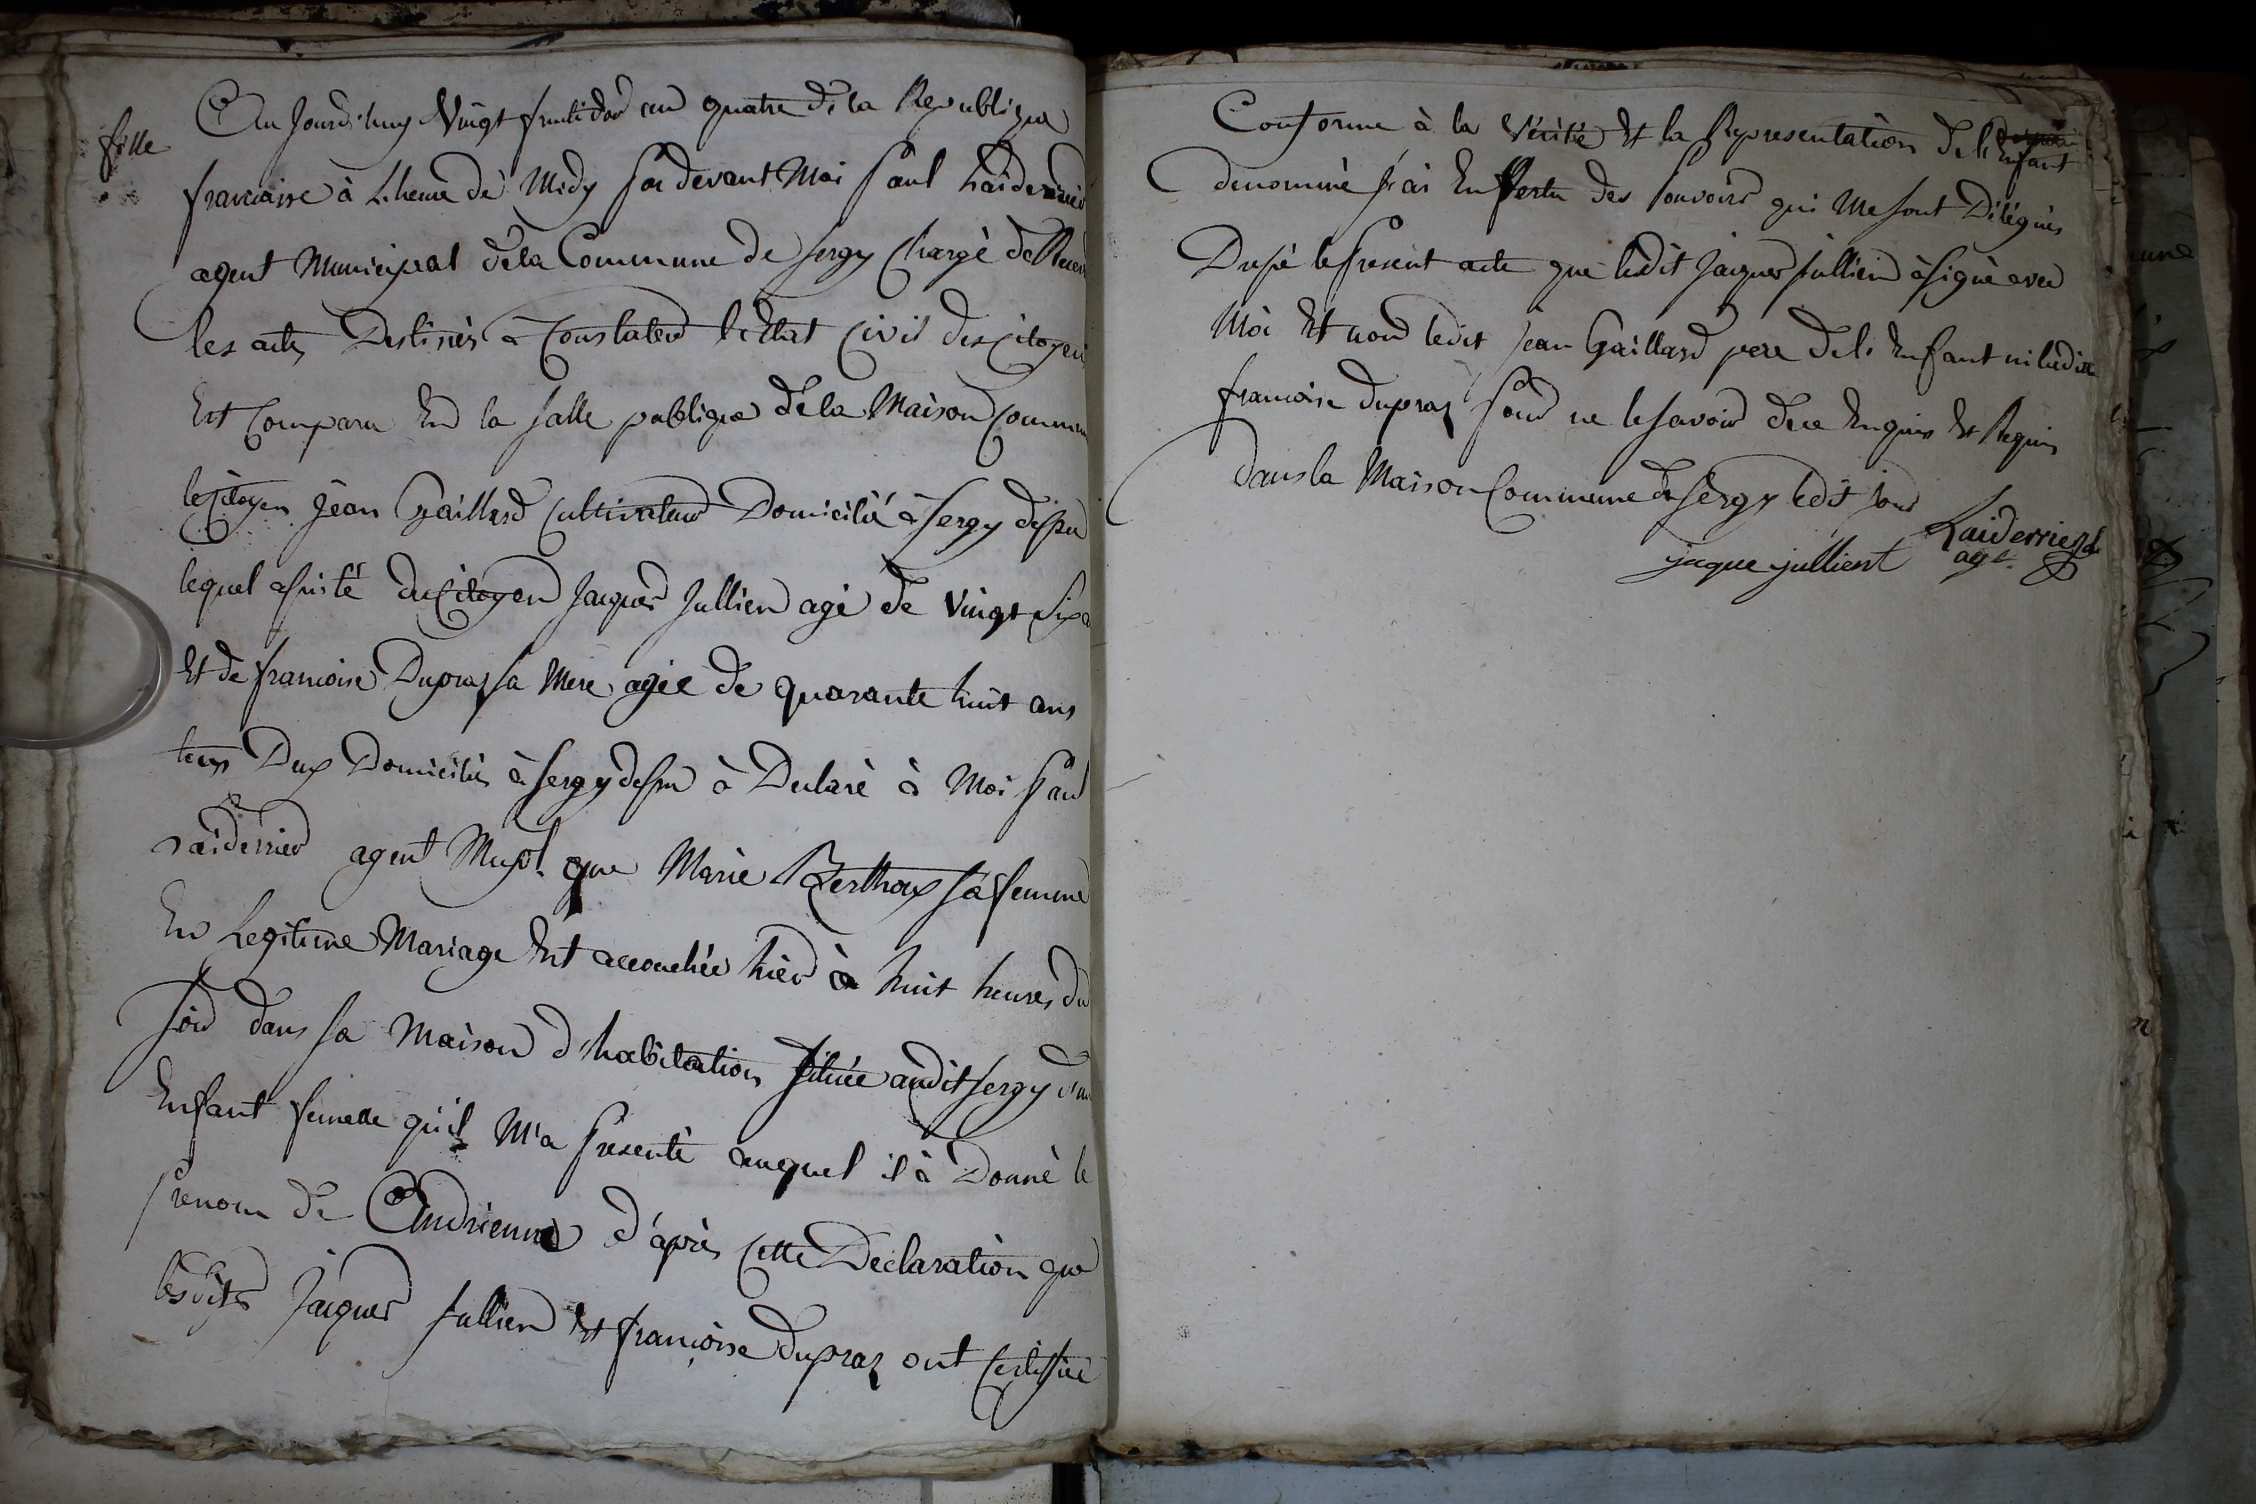 fille
Aujourdhuy Vingt fructidor an quatre de la Republique
francaise à L heure de Midy par devant Moi Paul Laiderrier
agent Municipal de la Commune de Sergy Chargé de Recev
les actes Destinés à Constater l'Etat Civil des Citoyens
Est Comparu En la Salle publique de la Maison Commun
le Citoyen Jean Gaillard Cultivateur Domicilié à Sergy dessu
lequel assisté du Citoyen Jacques Jullien agé de Vingt Six
Et de francoise Dupraz sa Mere agée de quarante huit ans
tous Deux Domiciliés à Sergy dessu à Declaré à Moi Paul
Laiderrier agent Mupl. que Marie Berthoux sa femme
En Legitime Mariage Est accouchée hier à huit heures du
Soir dans sa Maison d'habitation Située audit Sergy d'un
Enfant femelle qu'il M'a Presenté auquel il à Donné le
Prenom de Andrienne d'après Cette Declaration que
lesdits Jacques Jullien Et francoise Dupraz ont Certiffié
Conforme à la Vérité Et la Representation de l'Enfant
denommé J'ai En Vertu des Pouvoirs qui Me sont Délégués
Dressé le Present acte que ledit Jacques Jullien à Signé avec
Moi Et non ledit Jean Gaillard pere de l'Enfant ni ladite
francoise Dupraz Pour ne le savoir de ce Enquis Et Requis
dans la Maison Commune de Sergy ledit jour
jaque jullient Laiderrier
agt.